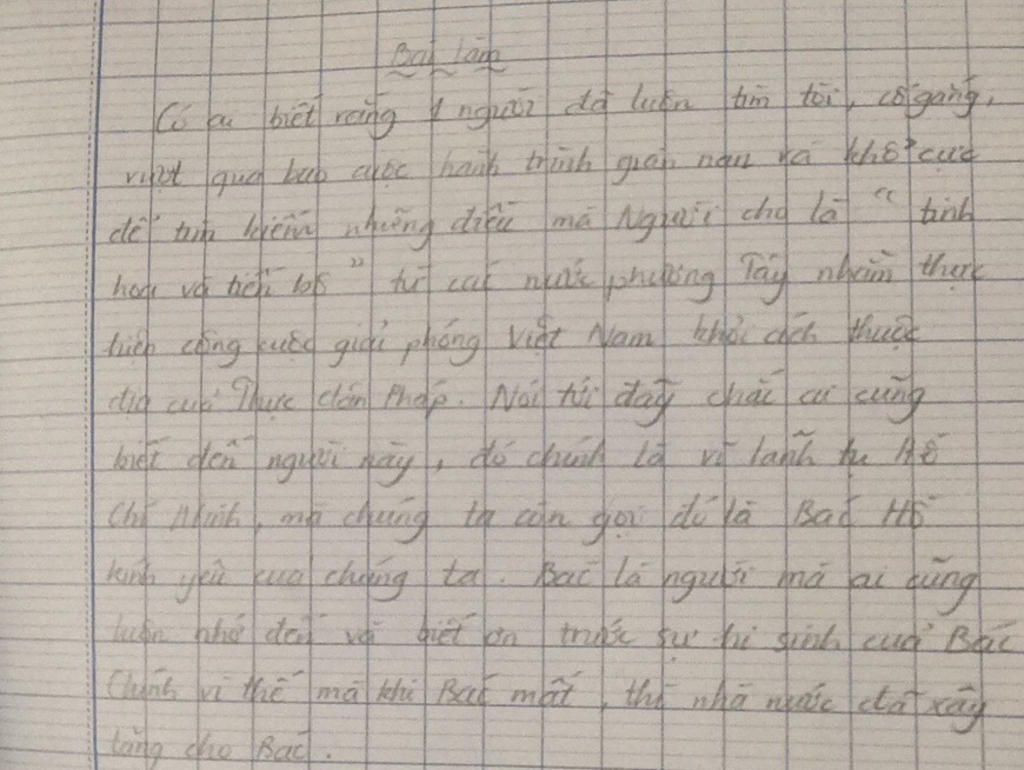 Bài làm
Có ai biết rằng 1 người đã luôn tìm tòi, cố gắng,
vượt qua bao cuộc hành trình gian nan và khổ cực
để tìm kiếm những điều mà Người cho là "tinh
hoa và tiến bộ" từ các nước phương Tây nhằm thực
hiện công cuộc giải phóng Việt Nam khỏi ách thuộc
địa của Thực dân Pháp. Nói tới đây chắc ai cũng
biết đến người này, đó chính là vĩ lãnh tụ Hồ
Chí Minh, mà chúng ta còn gọi đó là Bác Hồ
kính yêu của chúng ta. Bác là người mà ai cũng
luôn nhớ đến và biết ơn trước sự hi sinh của Bác
Chính vì thế mà khi Bác mất, thì nhà nước đã xây
lăng cho Bác.